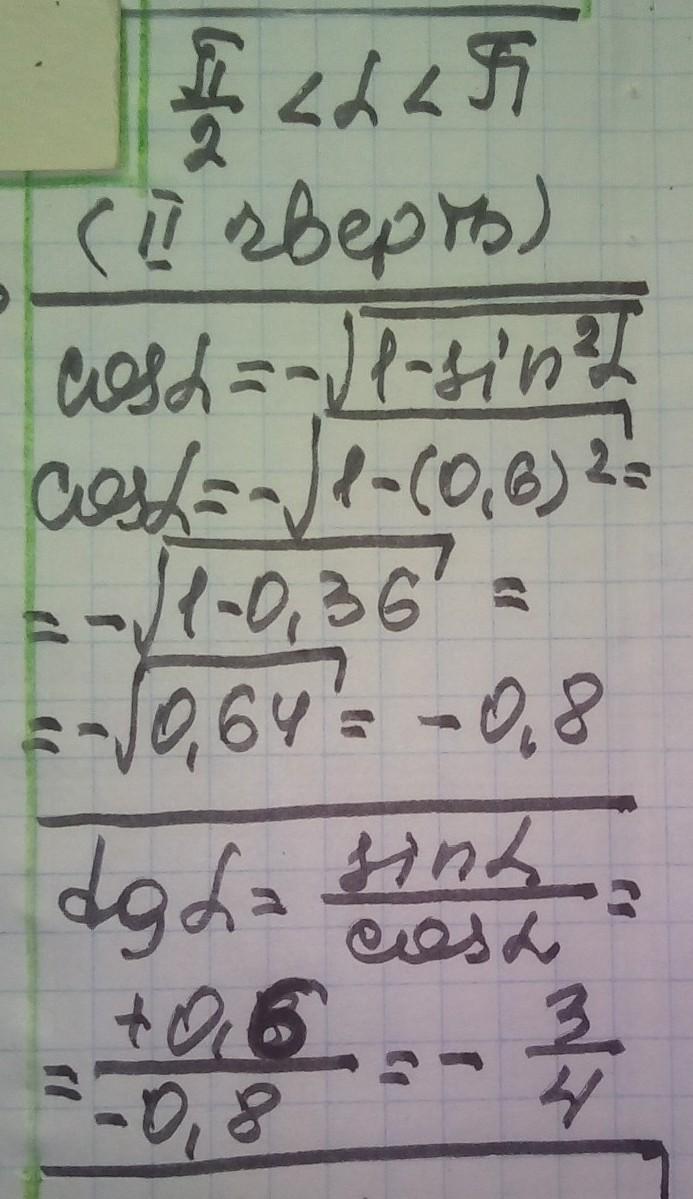 π/2 < α < π
(II чверть)
cosα = -√(1-sin²α)
cosα = -√(1-(0,6)²) =
= -√(1-0,36) =
= -√(0,64) = -0,8
tgα = sinα/cosα =
= +0,6/-0,8 = - 3/4